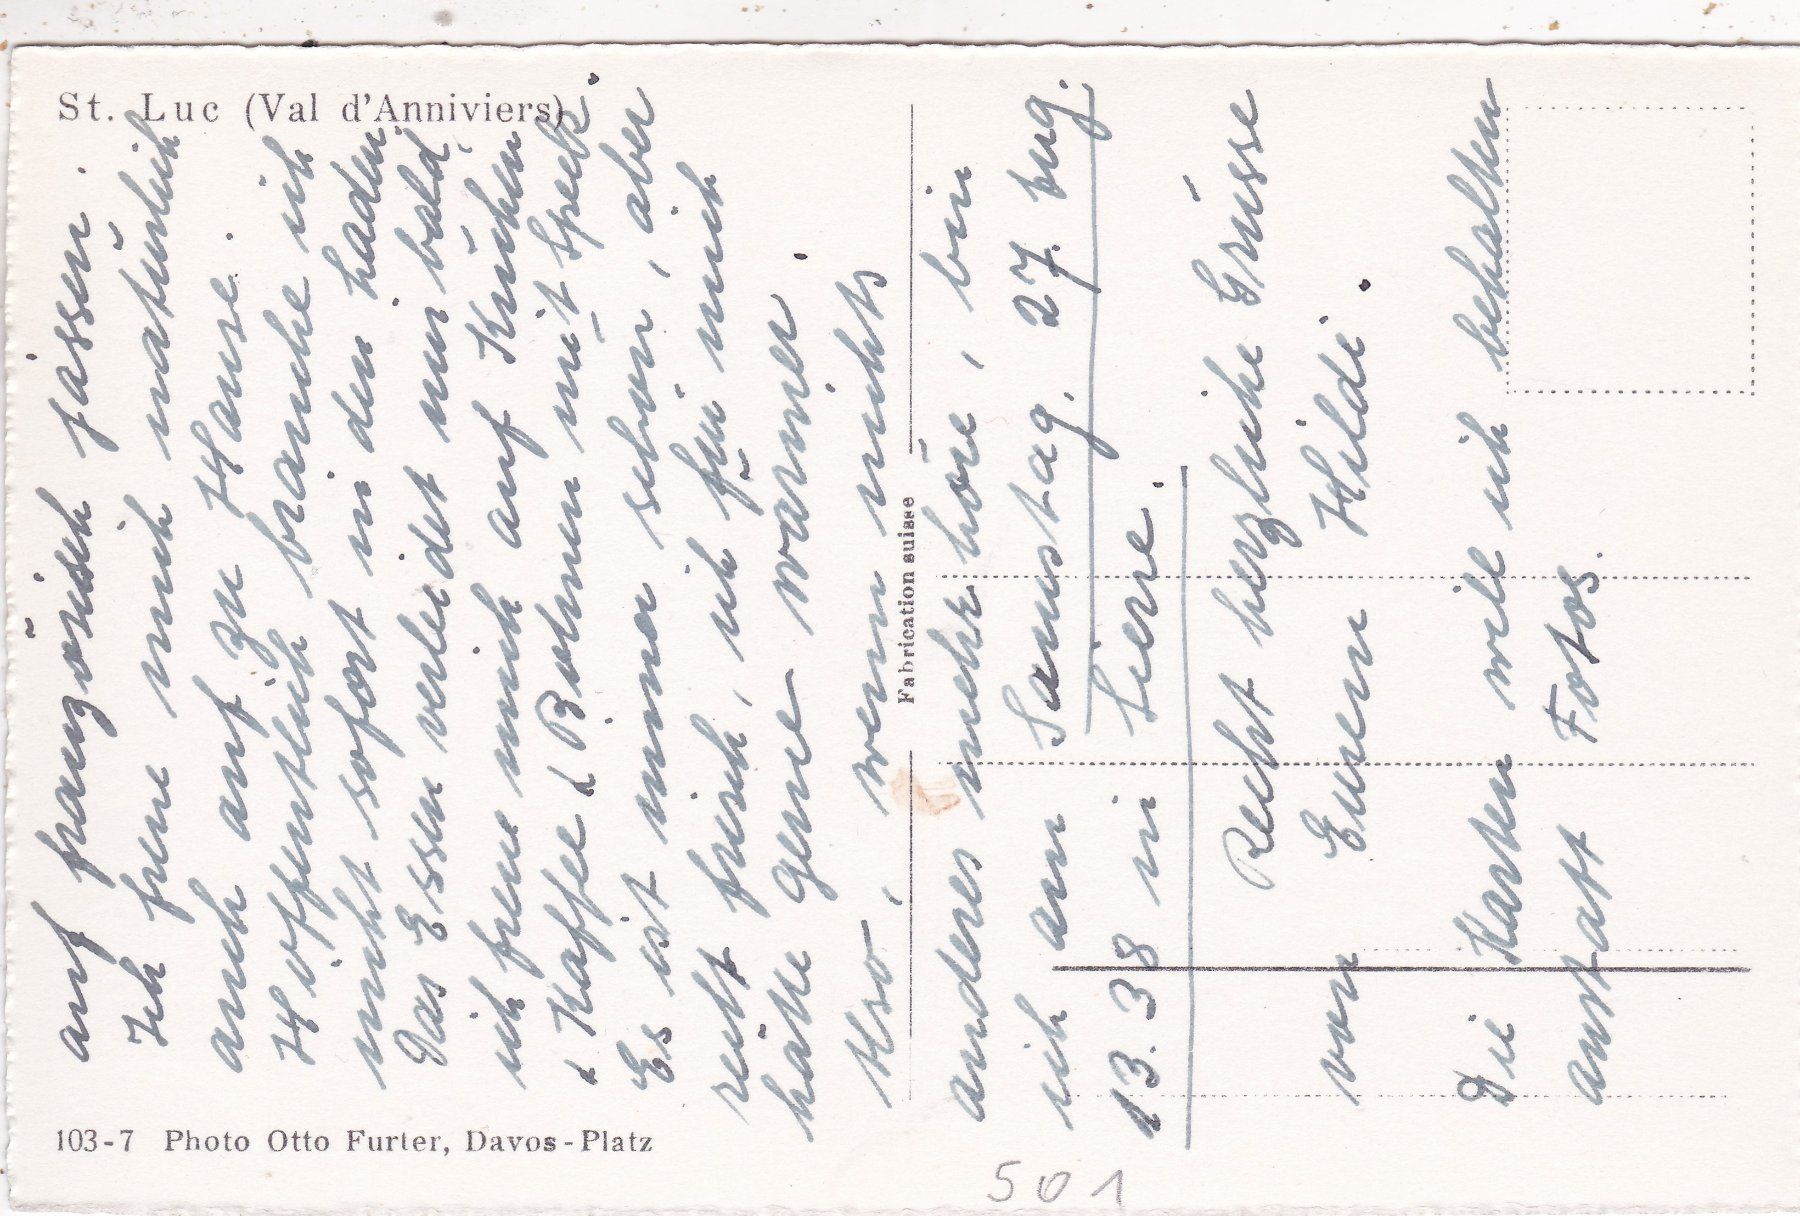 St. Luc (Val d'Anniviers)
auf französisch jassen.
Ich freue mich natürlich
auch auf zu Hause.
Hoffentlich brauche ich
nicht sofort in den Laden.
Das Essen verleidet mir bald,
ich freue mich auf Kuchen
u Kaffee u Bohnen mit Speck.
Es ist immer schön, aber
recht frisch, ich für mich
hätte gerne wärmer.
Also, wenn nichts
anderes mehr höre, bin
ich am Samstag. 27. Aug.
13.38 in Siere.
Recht herzliche Grüsse
von Euerer Hildi.
Die Karten will ich behalten
anstatt Fotos.
Fabrication suisse
103-7 Photo Otto Furter, Davos-Platz
501